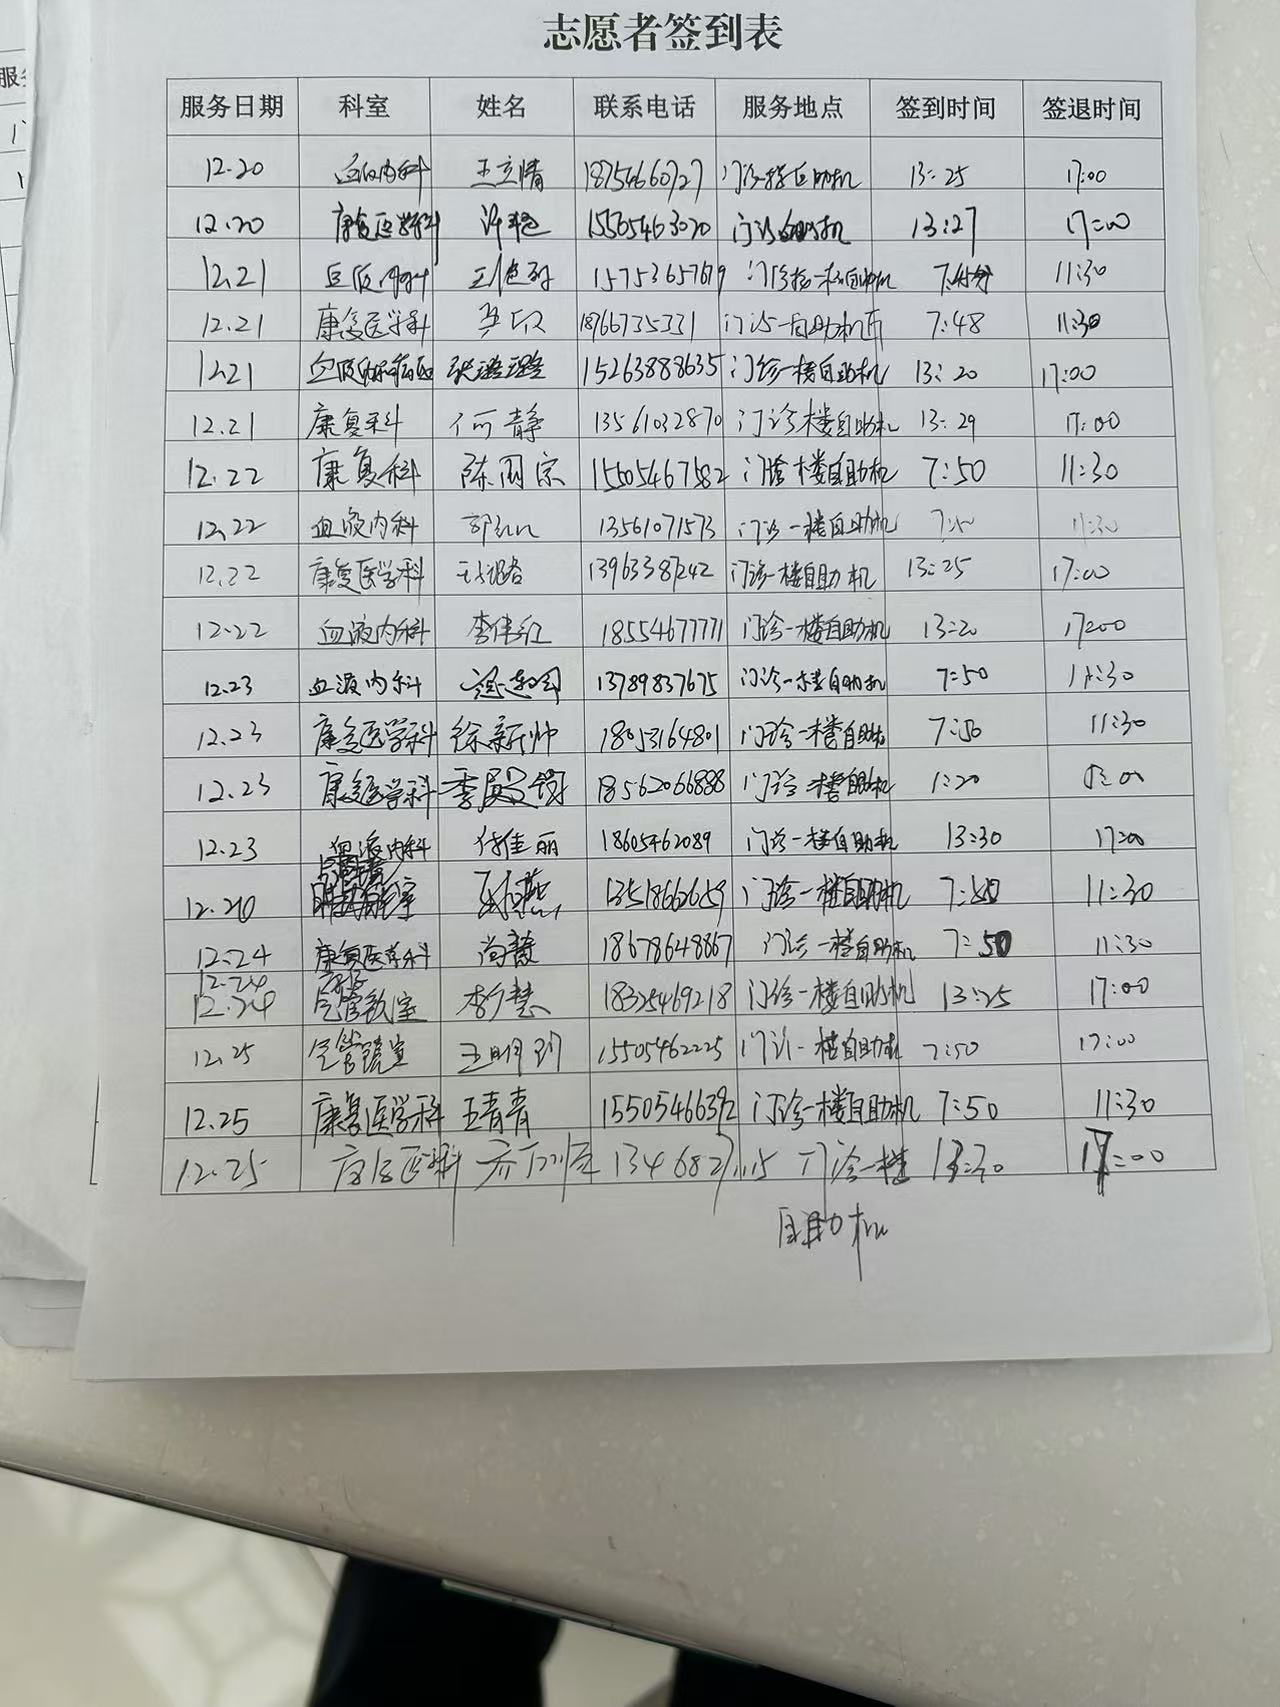 志愿者签到表
服务日期 科室 姓名 联系电话 服务地点 签到时间 签退时间
12.20 血液内科 王立情 18754660727 门诊一楼自助机 13:25 17:00
12.20 康复医学科 15505463020 门诊自助机 13:27 17:00
12.21 血液内科 15753657679 门诊一楼自助机 7:45分 11:30
12.21 康复医学科 18966735331 门诊一自助机 7:48 11:30
12.21 血液内科 张璐璐 15263888635 门诊一楼自助机 13:20 17:00
12.21 康复科 何静 13561032870 门诊楼自助机 13:29 17:00
12.22 康复科 陈国宗 15505467582 门诊楼自助机 7:50 11:30
12.22 血液内科 13561071573 门诊一楼自助机 7:50 11:30
12.22 康复医学科 13963387242 门诊一楼自助机 13:25 17:00
12.22 血液内科 李伟红 18554677771 门诊一楼自助机 13:20 17:00
12.23 血液内科 13789837675 门诊一楼自助机 7:50 11:30
12.23 康复医学科 徐新帅 18053164801 门诊一楼自助机 7:50 11:30
12.23 康复医学科 18562066888 门诊一楼自助机 1:20
12.23 血液内科 付佳丽 18605462089 门诊一楼自助机 13:30 17:00
12.20 13518662659 门诊一楼自助机 7:50 11:30
12.24 康复医学科 尚慧 18678648867 门诊一楼自助机 7:50 11:30
12.24
12.24 李慧 18325469218 门诊一楼自助机 13:25 17:00
12.25 王明 15505462225 门诊一楼自助机 7:50 17:00
12.25 康复医学科 王青青 15505466392 门诊一楼自助机 7:50 11:30
12.25 康复医学科 门诊一楼 13:30 17:00
自助机